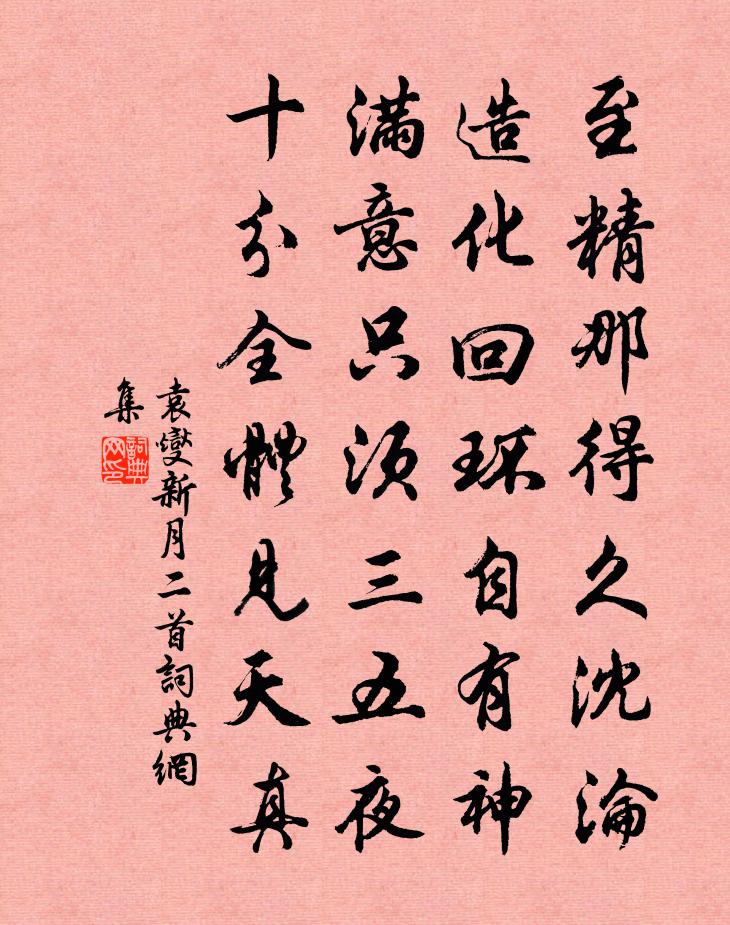 至精那得久沈淪
造化回環自有神
滿意只須三五夜
十分全體見天真
袁燮新月二首詞典網
集
詞典網印